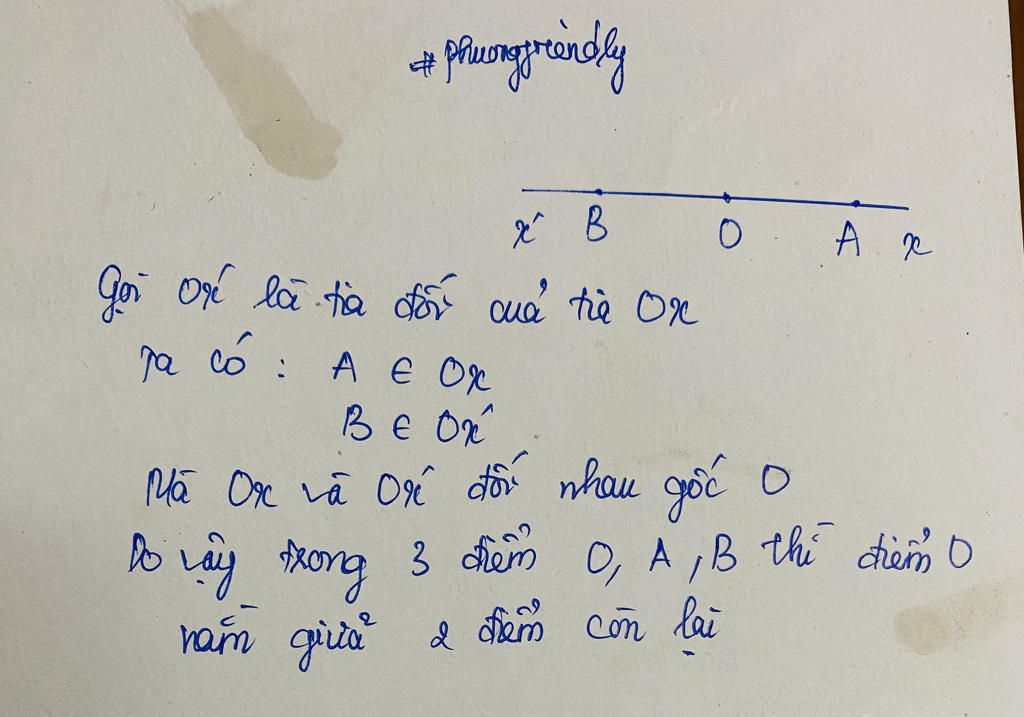 #phuongfriendly
x' B O A x
Gọi Ox' là tia đối của tia Ox
Ta có : A ∈ Ox
B ∈ Ox'
Mà Ox và Ox' đối nhau gốc O
Do vậy trong 3 điểm O, A, B thì điểm O
nằm giữa 2 điểm còn lại